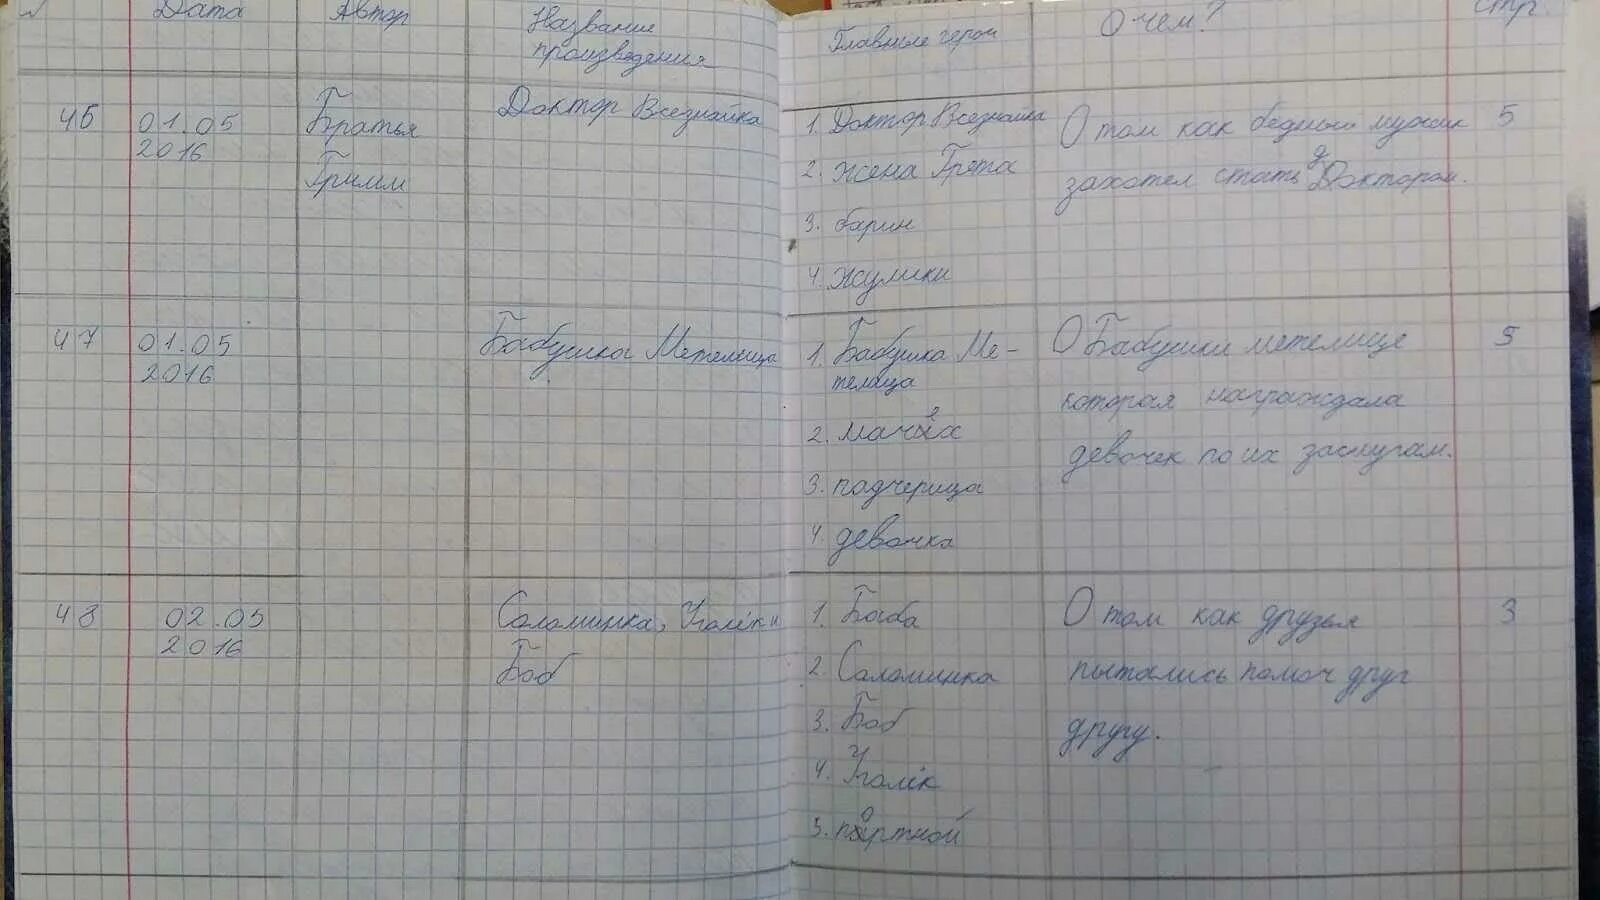 Дата Автор Название произведения Главные герои О чем? стр.
46 01.05 2016 Братья Гримм Доктор Всезнайка
1. Доктор Всезнайка
2. жена Грета
3. барин
4. жулики
О том как бедный мужик
захотел стать Доктором.
5
47 01.05 2016 Бабушка Метелица
1. Бабушка Ме-
телица
2. мачех
3. падчерица
4. девочка
О Бабушки метелице
которая награждала
девочек по их заслугам.
5
48 02.05 2016 Соломинка, Уголёк и
Боб
1. Баба
2. Соломинка
3. Боб
4. Уголёк
5. портной
О том как друзья
пытались помоч друг
другу.
3